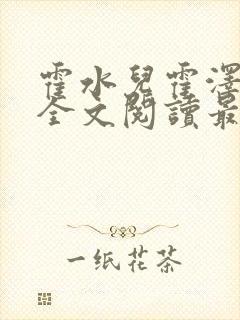 霍水兒霍澤
全文閱讀最
一纸花茶